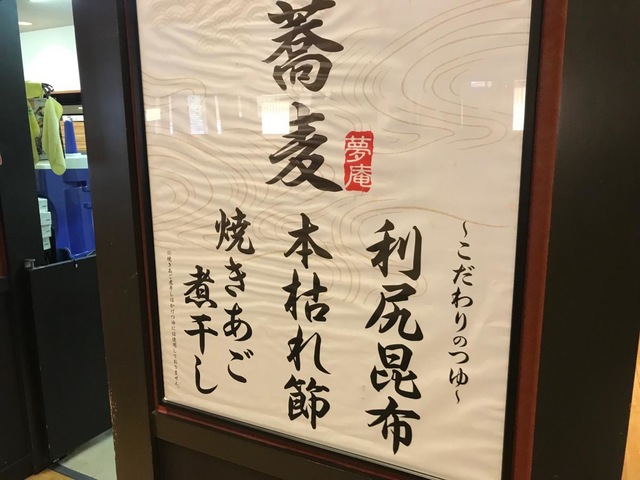 蕎麦
夢庵
~こだわりのつゆ~
利尻昆布
本枯れ節
焼きあご
煮干し